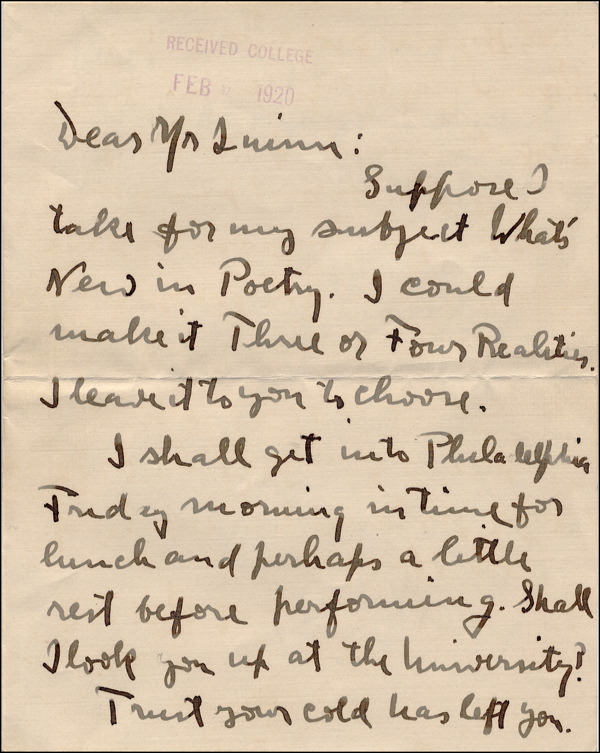 RECEIVED COLLEGE
FEB 1920
Dear Mr Quinn:
Suppose I
take for my subject What's
New in Poetry. I could
make it Three or Four Realities.
I leave it to you to choose.
I shall get into Philadelphia
Friday morning in time for
lunch and perhaps a little
rest before performing. Shall
I look you up at the University?
Trust your cold has left you.